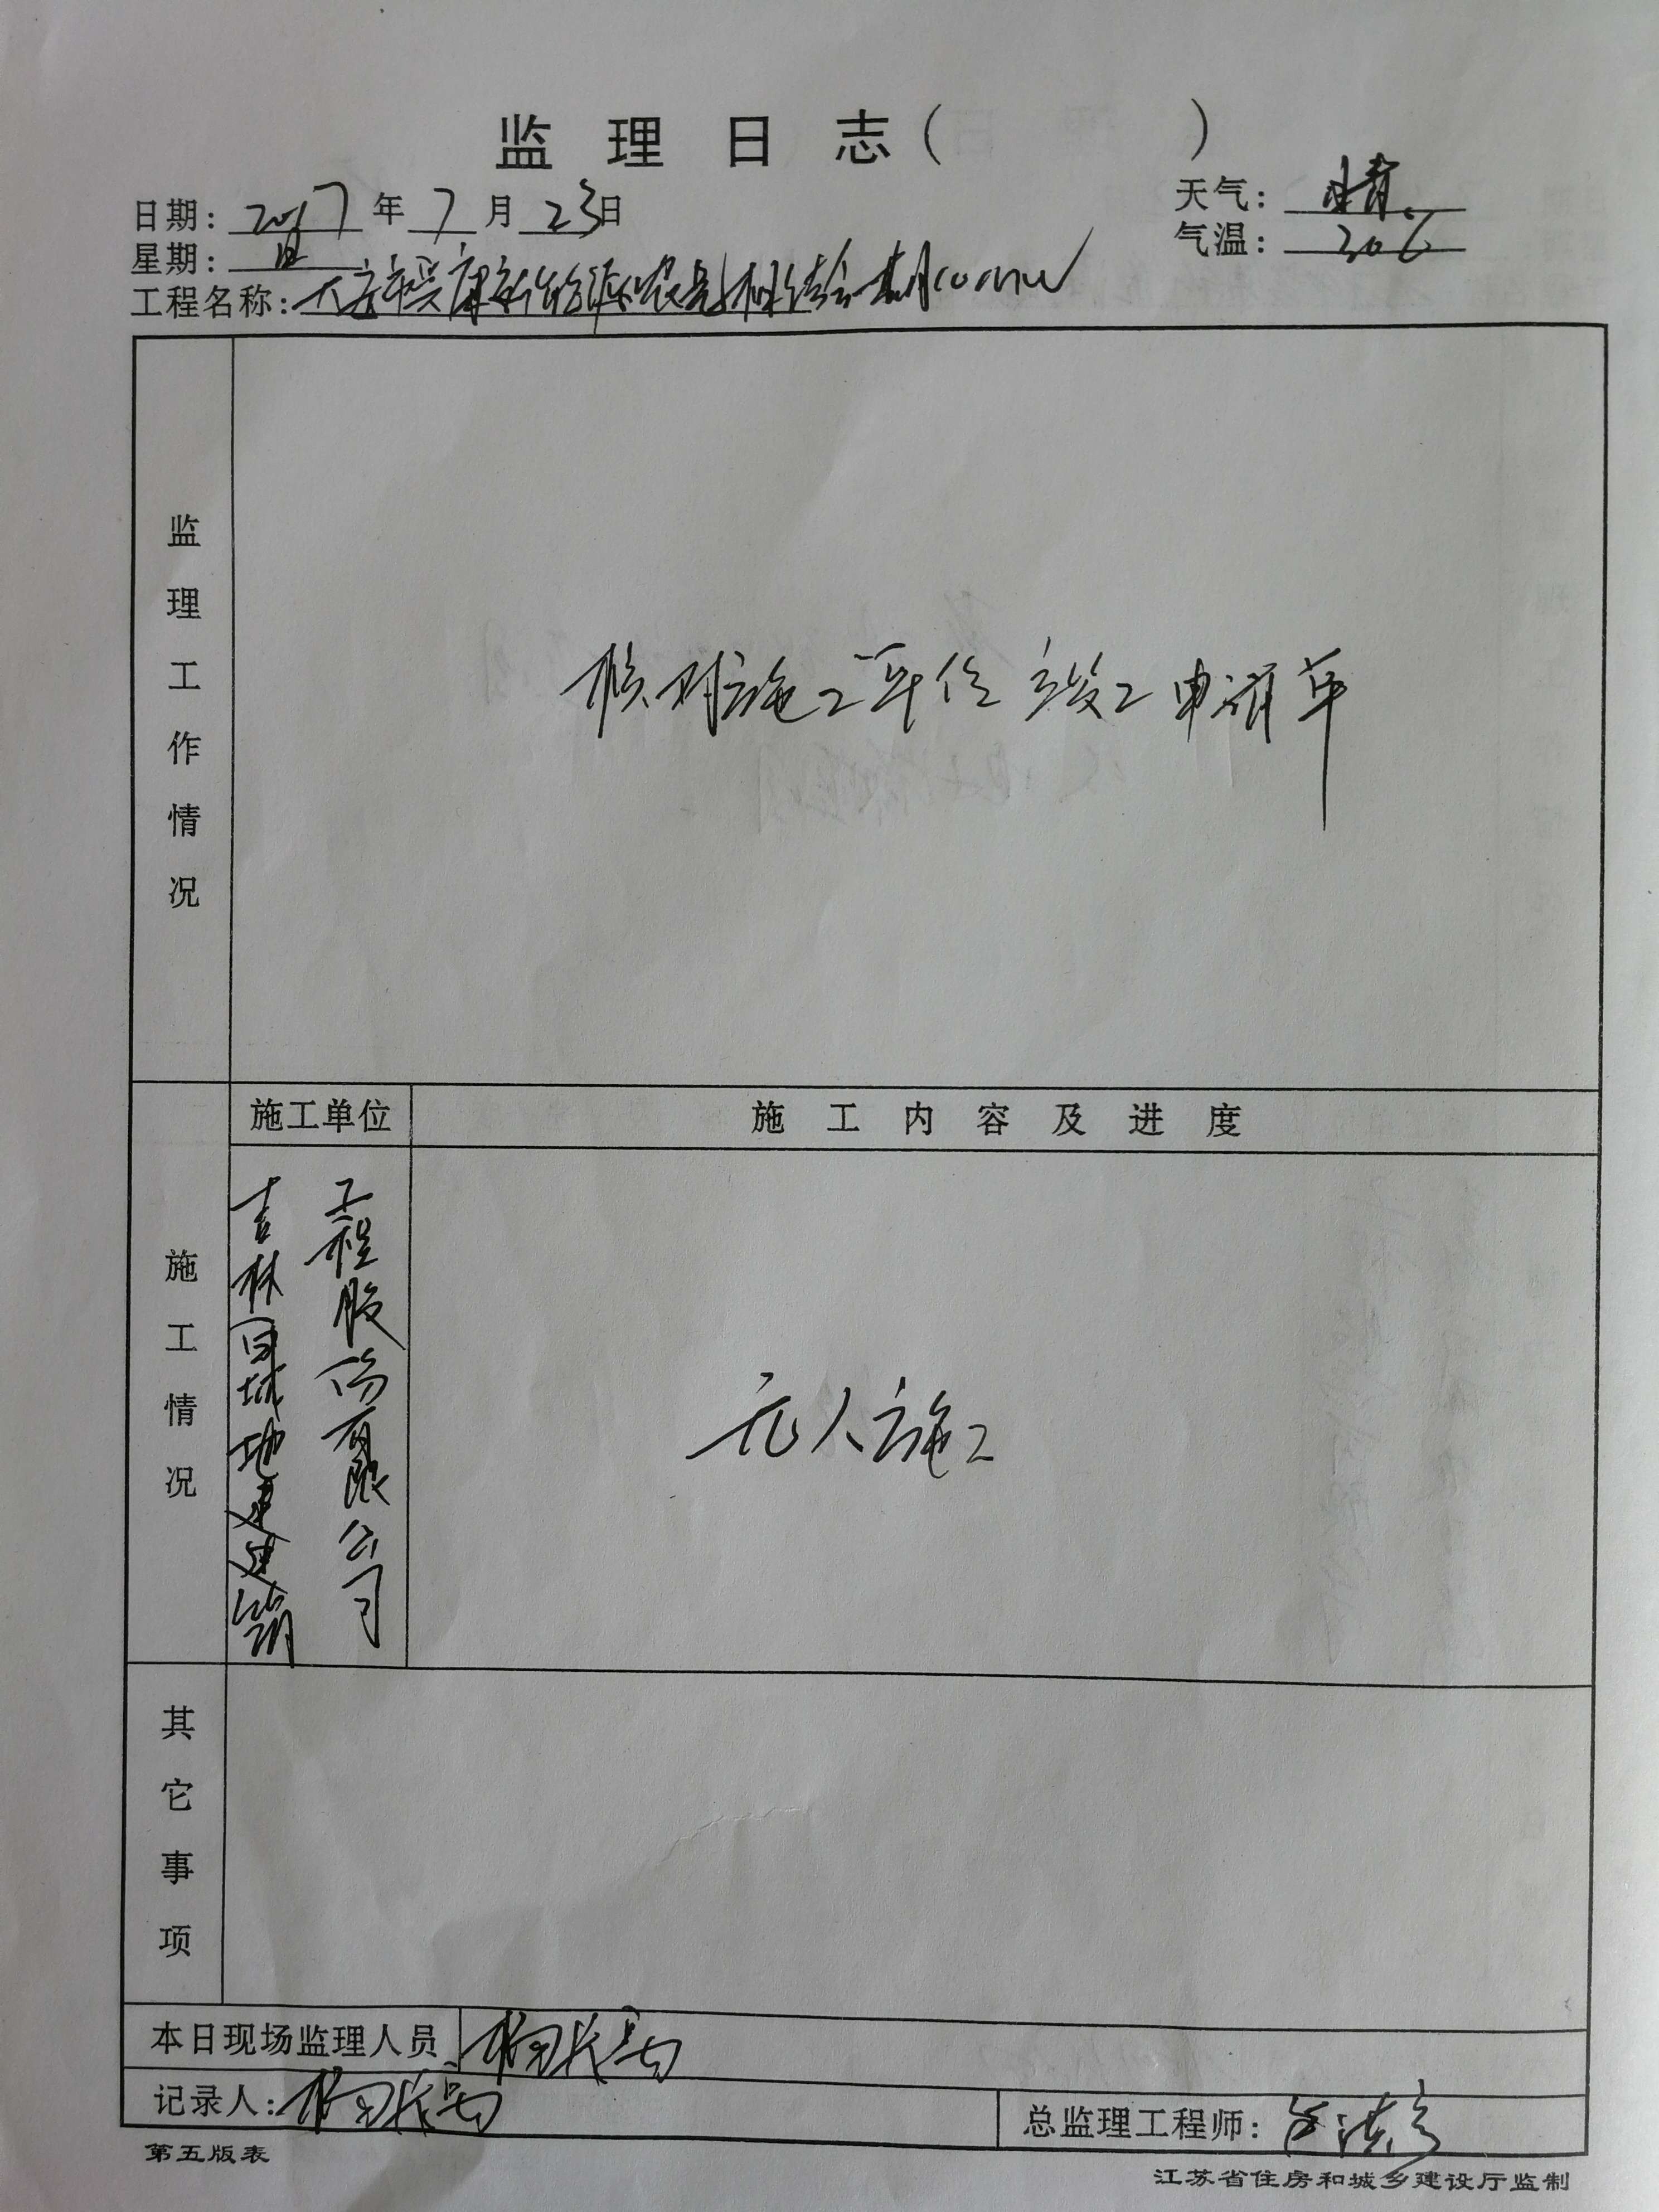 监理日志（ ）
日期：2017年7月23日
天气：晴
星期：日
气温：30℃
工程名称：大安市兴康新能源农光
监理工作情况
核对施工单位竣工申请单
施工单位
施工内容及进度
施工情况
吉林 城地建 建筑
工程股份有限公司
无人施工
其它事项
本日现场监理人员
记录人：
总监理工程师：
第五版表
江苏省住房和城乡建设厅监制